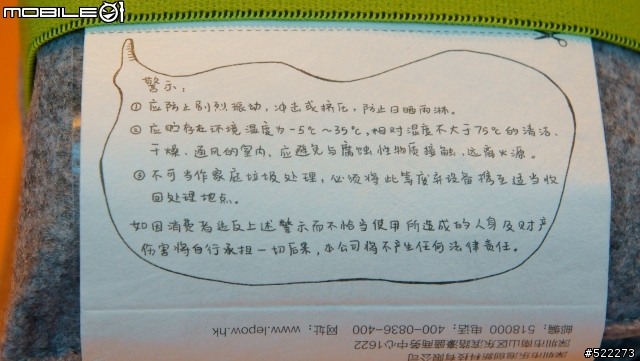 MOBILE01
警示：
①应防止剧烈振动，冲击或挤压，防止日晒雨淋。
②应贮存在环境温度为-5℃～35℃，相对湿度不大于75℃的清洁、
干燥、通风的室内，应避免与腐蚀性物质接触，远离火源。
③不可当作家庭垃圾处理，必须将此等废弃设备携至适当收
回处理地点。
如因消费者违反上述警示而不恰当使用所造成的人身及财产
伤害将自行承担一切后果，本公司将不产生任何法律责任。
邮编：518000 电话：400-0836-400 网址：www.lepow.hk
深圳市南山区东滨路濠盛商务中心1622
科技有限公司
#522273